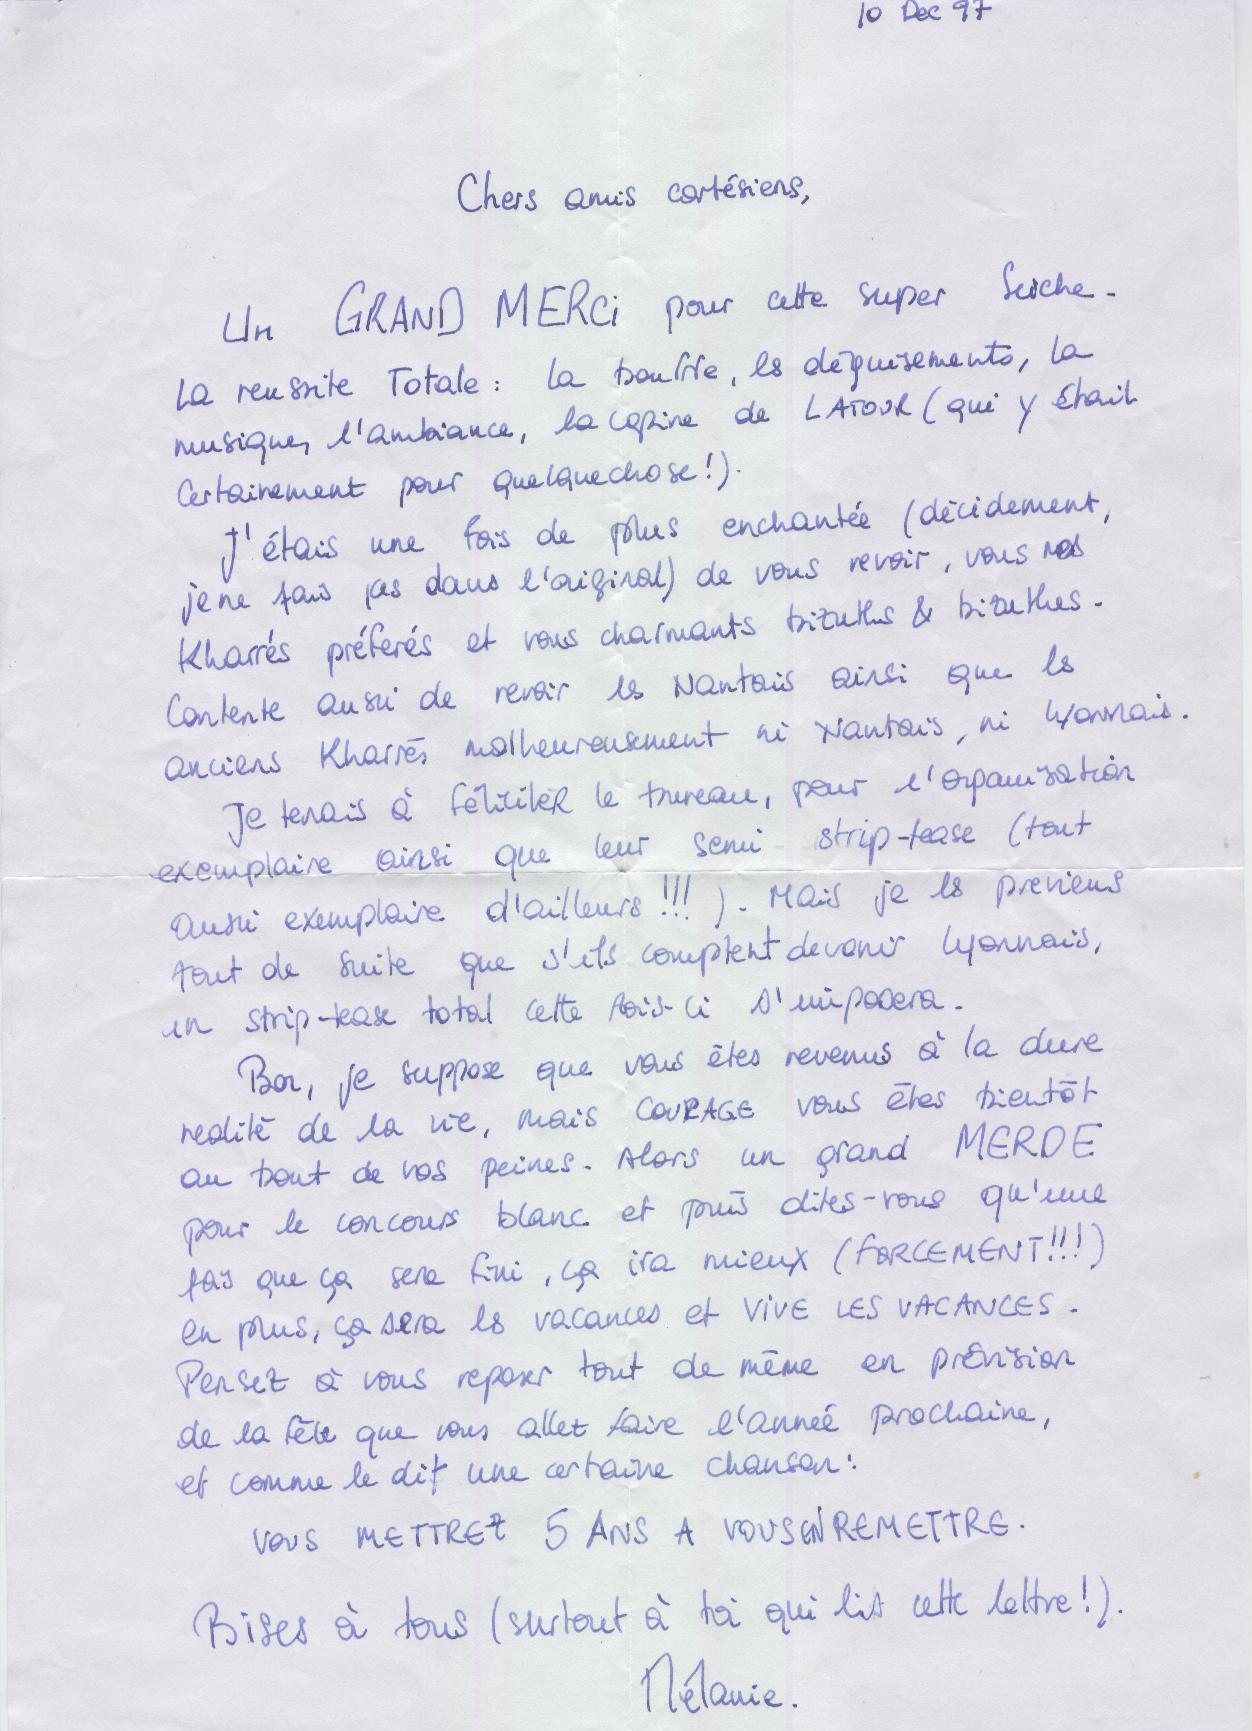 10 Dec 97
Chers amis cartésiens,
Un GRAND MERCi pour cette super Seiche.
La reussite Totale : la bouffe, les déguisements, la
musique, l'ambiance, la copine de LATOUR (qui y était
Certainement pour quelquechose !).
J'étais une fois de plus enchantée (décidement,
je ne fais pas dans l'original) de vous revoir, vous mes
Kharrés préférés et vous charmants bizuths & bizuthes.
Contente aussi de revoir les Nantais ainsi que les
anciens Kharrés malheureusement ni Nantais, ni Lyonnais.
Je tenais à féliciter le bureau, pour l'organisation
exemplaire ainsi que leur semi strip-tease (tout
aussi exemplaire d'ailleurs !!! ). Mais je les previens
tout de suite que s'ils comptent devenir Lyonnais,
un strip-tease total cette fois-ci s'imposera.
Bon, je suppose que vous êtes revenus à la dure
realité de la vie, mais COURAGE vous êtes bientôt
au bout de vos peines. Alors un grand MERDE
pour le concours blanc et puis dites-vous qu'une
fois que ça sera fini, ça ira mieux (FORCEMENT!!!)
en plus, ça sera les vacances et VIVE LES VACANCES.
Pensez à vous reposer tout de même en prévision
de la fête que vous allez faire l'année prochaine,
et comme le dit une certaine chanson :
VOUS METTREZ 5 ANS A VOUS EN REMETTRE.
Bises à tous (surtout à toi qui lis cette lettre !).
Mélanie.